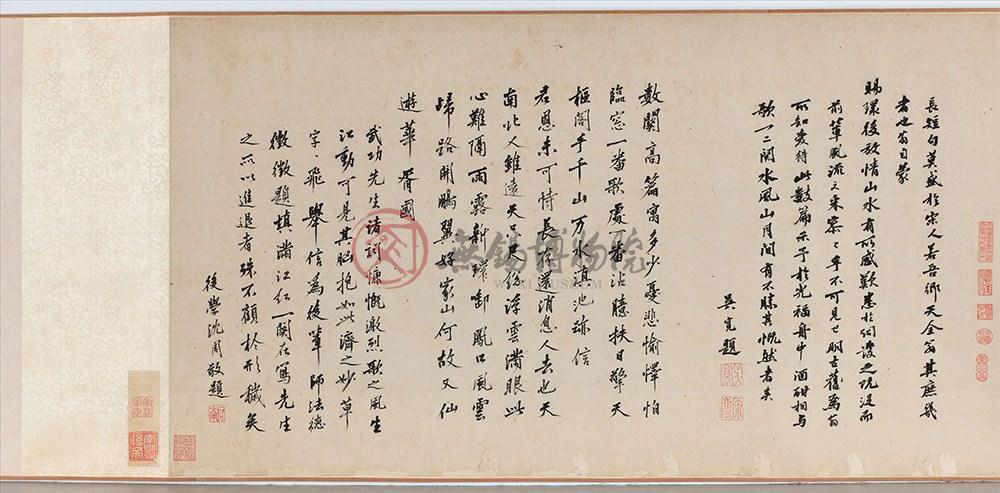 長短句莫盛於宋人若吾鄉天全翁其庶幾
者也翁自蒙
賜環後放情山水有所感歎悉於詞發之既沒而
前輩風流文采寥寥乎不可見已明古舊為翁
所知愛特此數篇示予於光福舟中酒酣相与
歌一二闋水風山月間有不勝其慨然者矣
吳寬題
數闋高篇寓多少憂悲愉懌怕
臨窓一番歌處一番沾臆扶日擎天
樞閣手千山万水滇池跡信
君恩未可恃長存還消息人去也天
南北人雖遠天只尺縱浮雲滿眼此
心難隔雨露新環卸風口風雲
歸路開鵬翼好家山何故又仙
遊華胥國
武功先生諸詞慷慨激烈歌之風生
江動可見其胸抱如此濟之妙草
字字飛舉信為後輩師法德
徵徵題填滿江紅一闋在寫先生
之所以進退者殊不顧於形穢矣
後學沈周敬題
無錫博物院